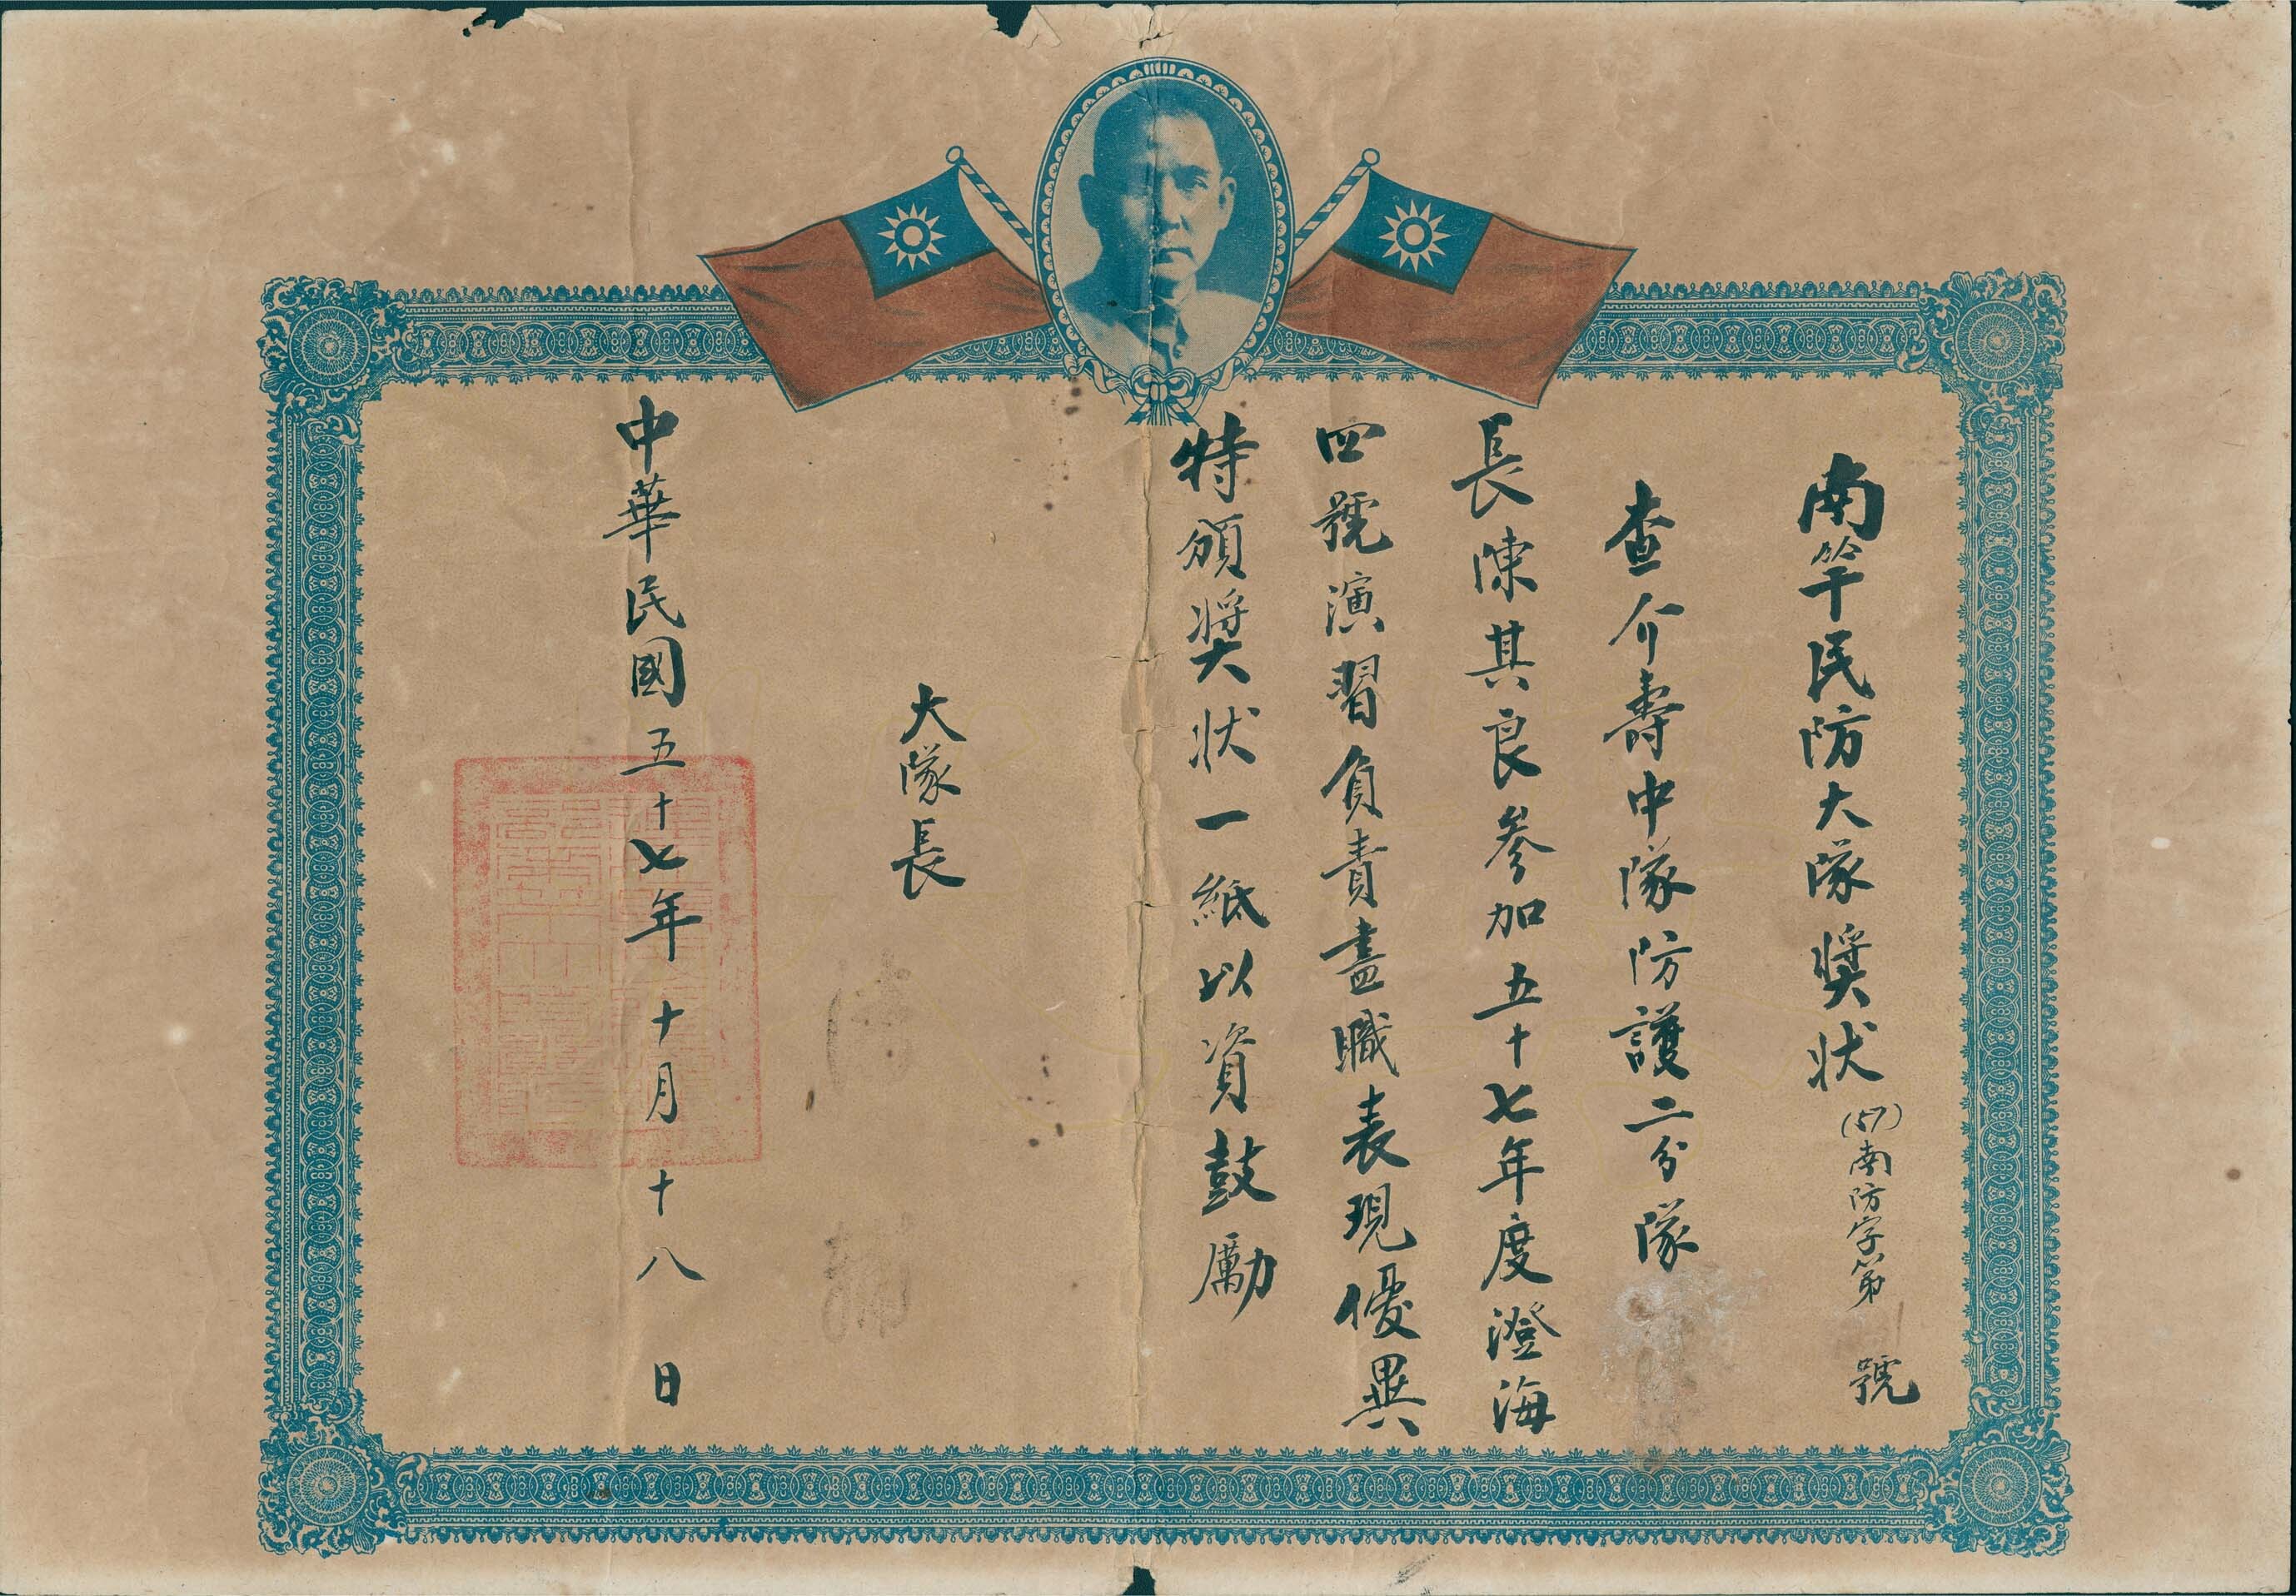 南竿民防大隊獎狀 (57)南防字第 號
查介壽中隊防護二分隊
長陳其良參加五十七年度澄海
四號演習負責盡職表現優異
特頒奬狀一紙以資鼓勵
大隊長
中華民國五十七年十月十八日